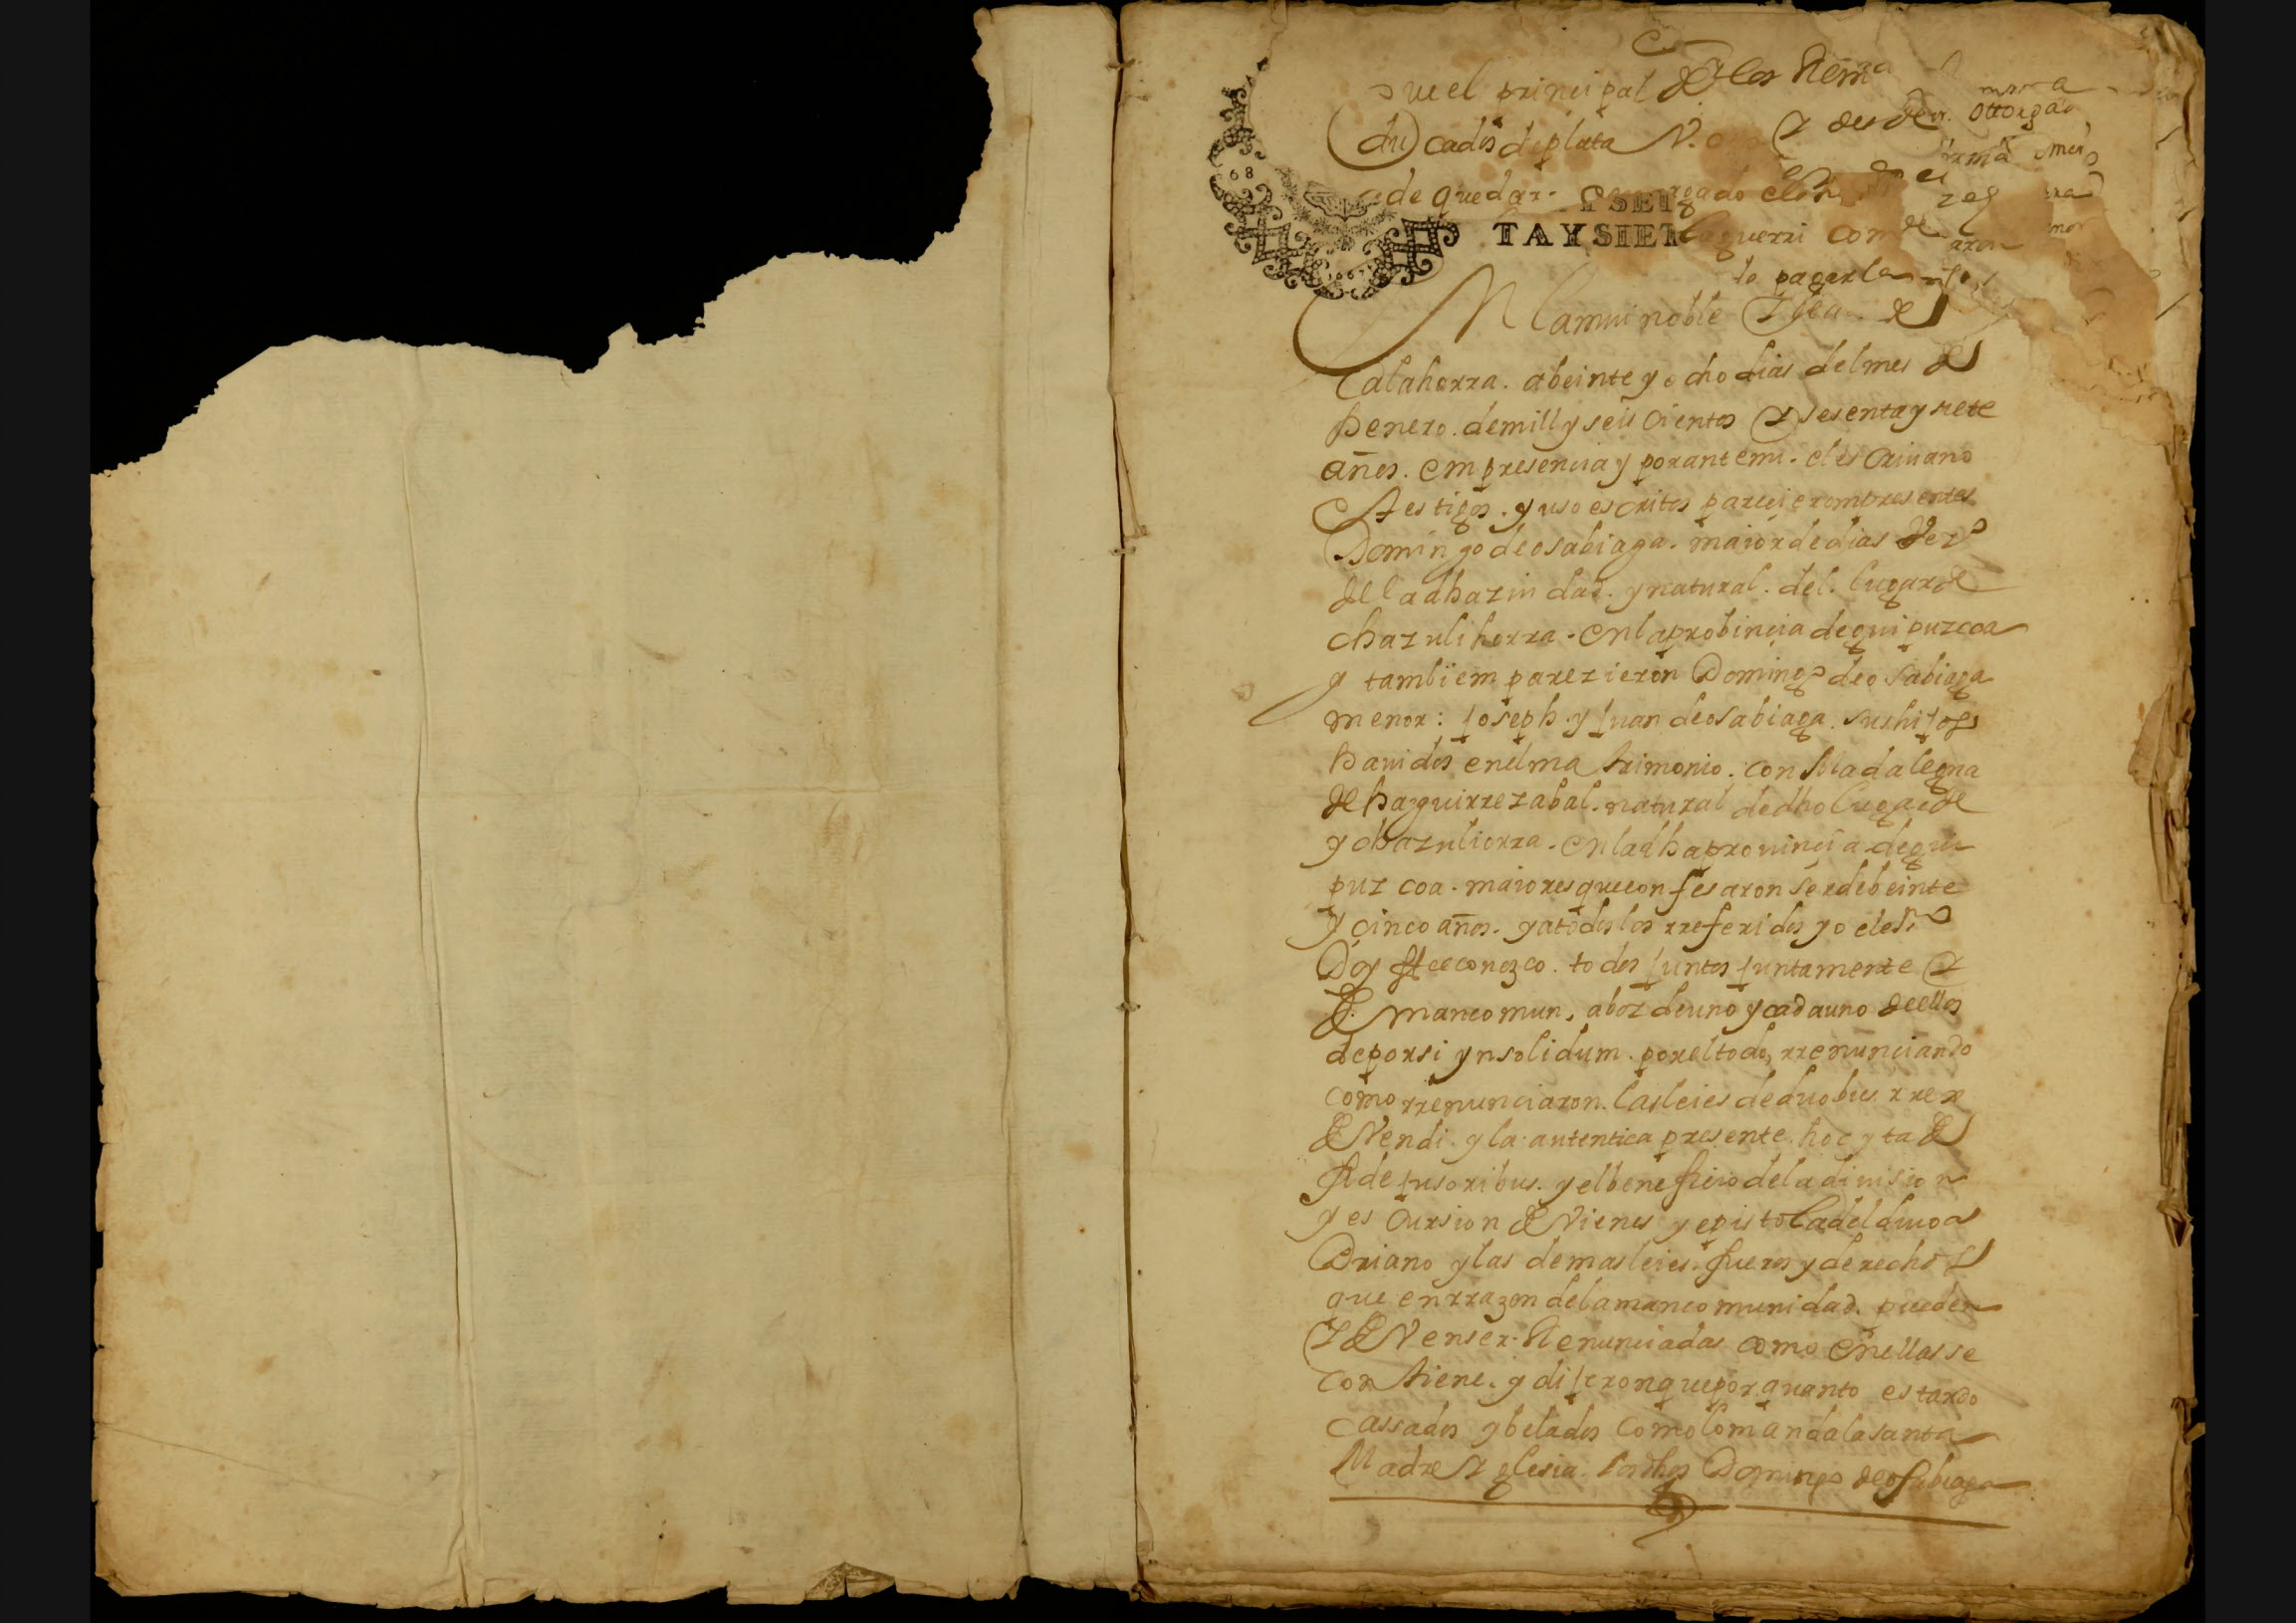 que el principal de los
ducados de plata
ade quedar
TAYSIET
de pagarla
En la mui noble
Calahorra. abeinte y ocho dias del mes de
henero. de mill y seis cientos y sesenta y siete
años. em presencia y por ante mi. el escrivano
testigos. y uso escritos parecierom presentes
Domingo de osabiaga. maior de dias vezº
de la dha ziudad. y natural. del. lugar de
chazulihorra. en la probincia de guipuzcoa
y tambiem parezieron Domingº de osabiaga
menor: Joseph y Juan de osabiaga. sus hijos
havidos en el matrimonio. con Madalegna
de haguirrezabal. natural de dho lugar de
ychazuliorra. en la dha provincia de gui
puzcoa. maiores que confesaron ser de beinte
y cinco años. y a todos los rreferidos yo el esno
Doy ffee conozco. todos juntos juntamente y
de mancomun, a boz de uno y cada uno de ellos
de por si ynsolidum. por el todo, rrenunciando
como rrenunciaron. las leies de duobus rrex
devendi. y la autentica presente. hoc yta de
fide jusoribus. y el beneficio de la division
y escursion de vienes y epistola del divo a
Driano y las demas leies. fueros y derechos
que en rrazon de la mancomunidad. pueden
y deven ser. Renunciadas como en ellas se
contiene. y dijeron que por quanto estando
cassados y belados como lo manda la santa
Madre yglesia. los dhos Domingo de osabiaga